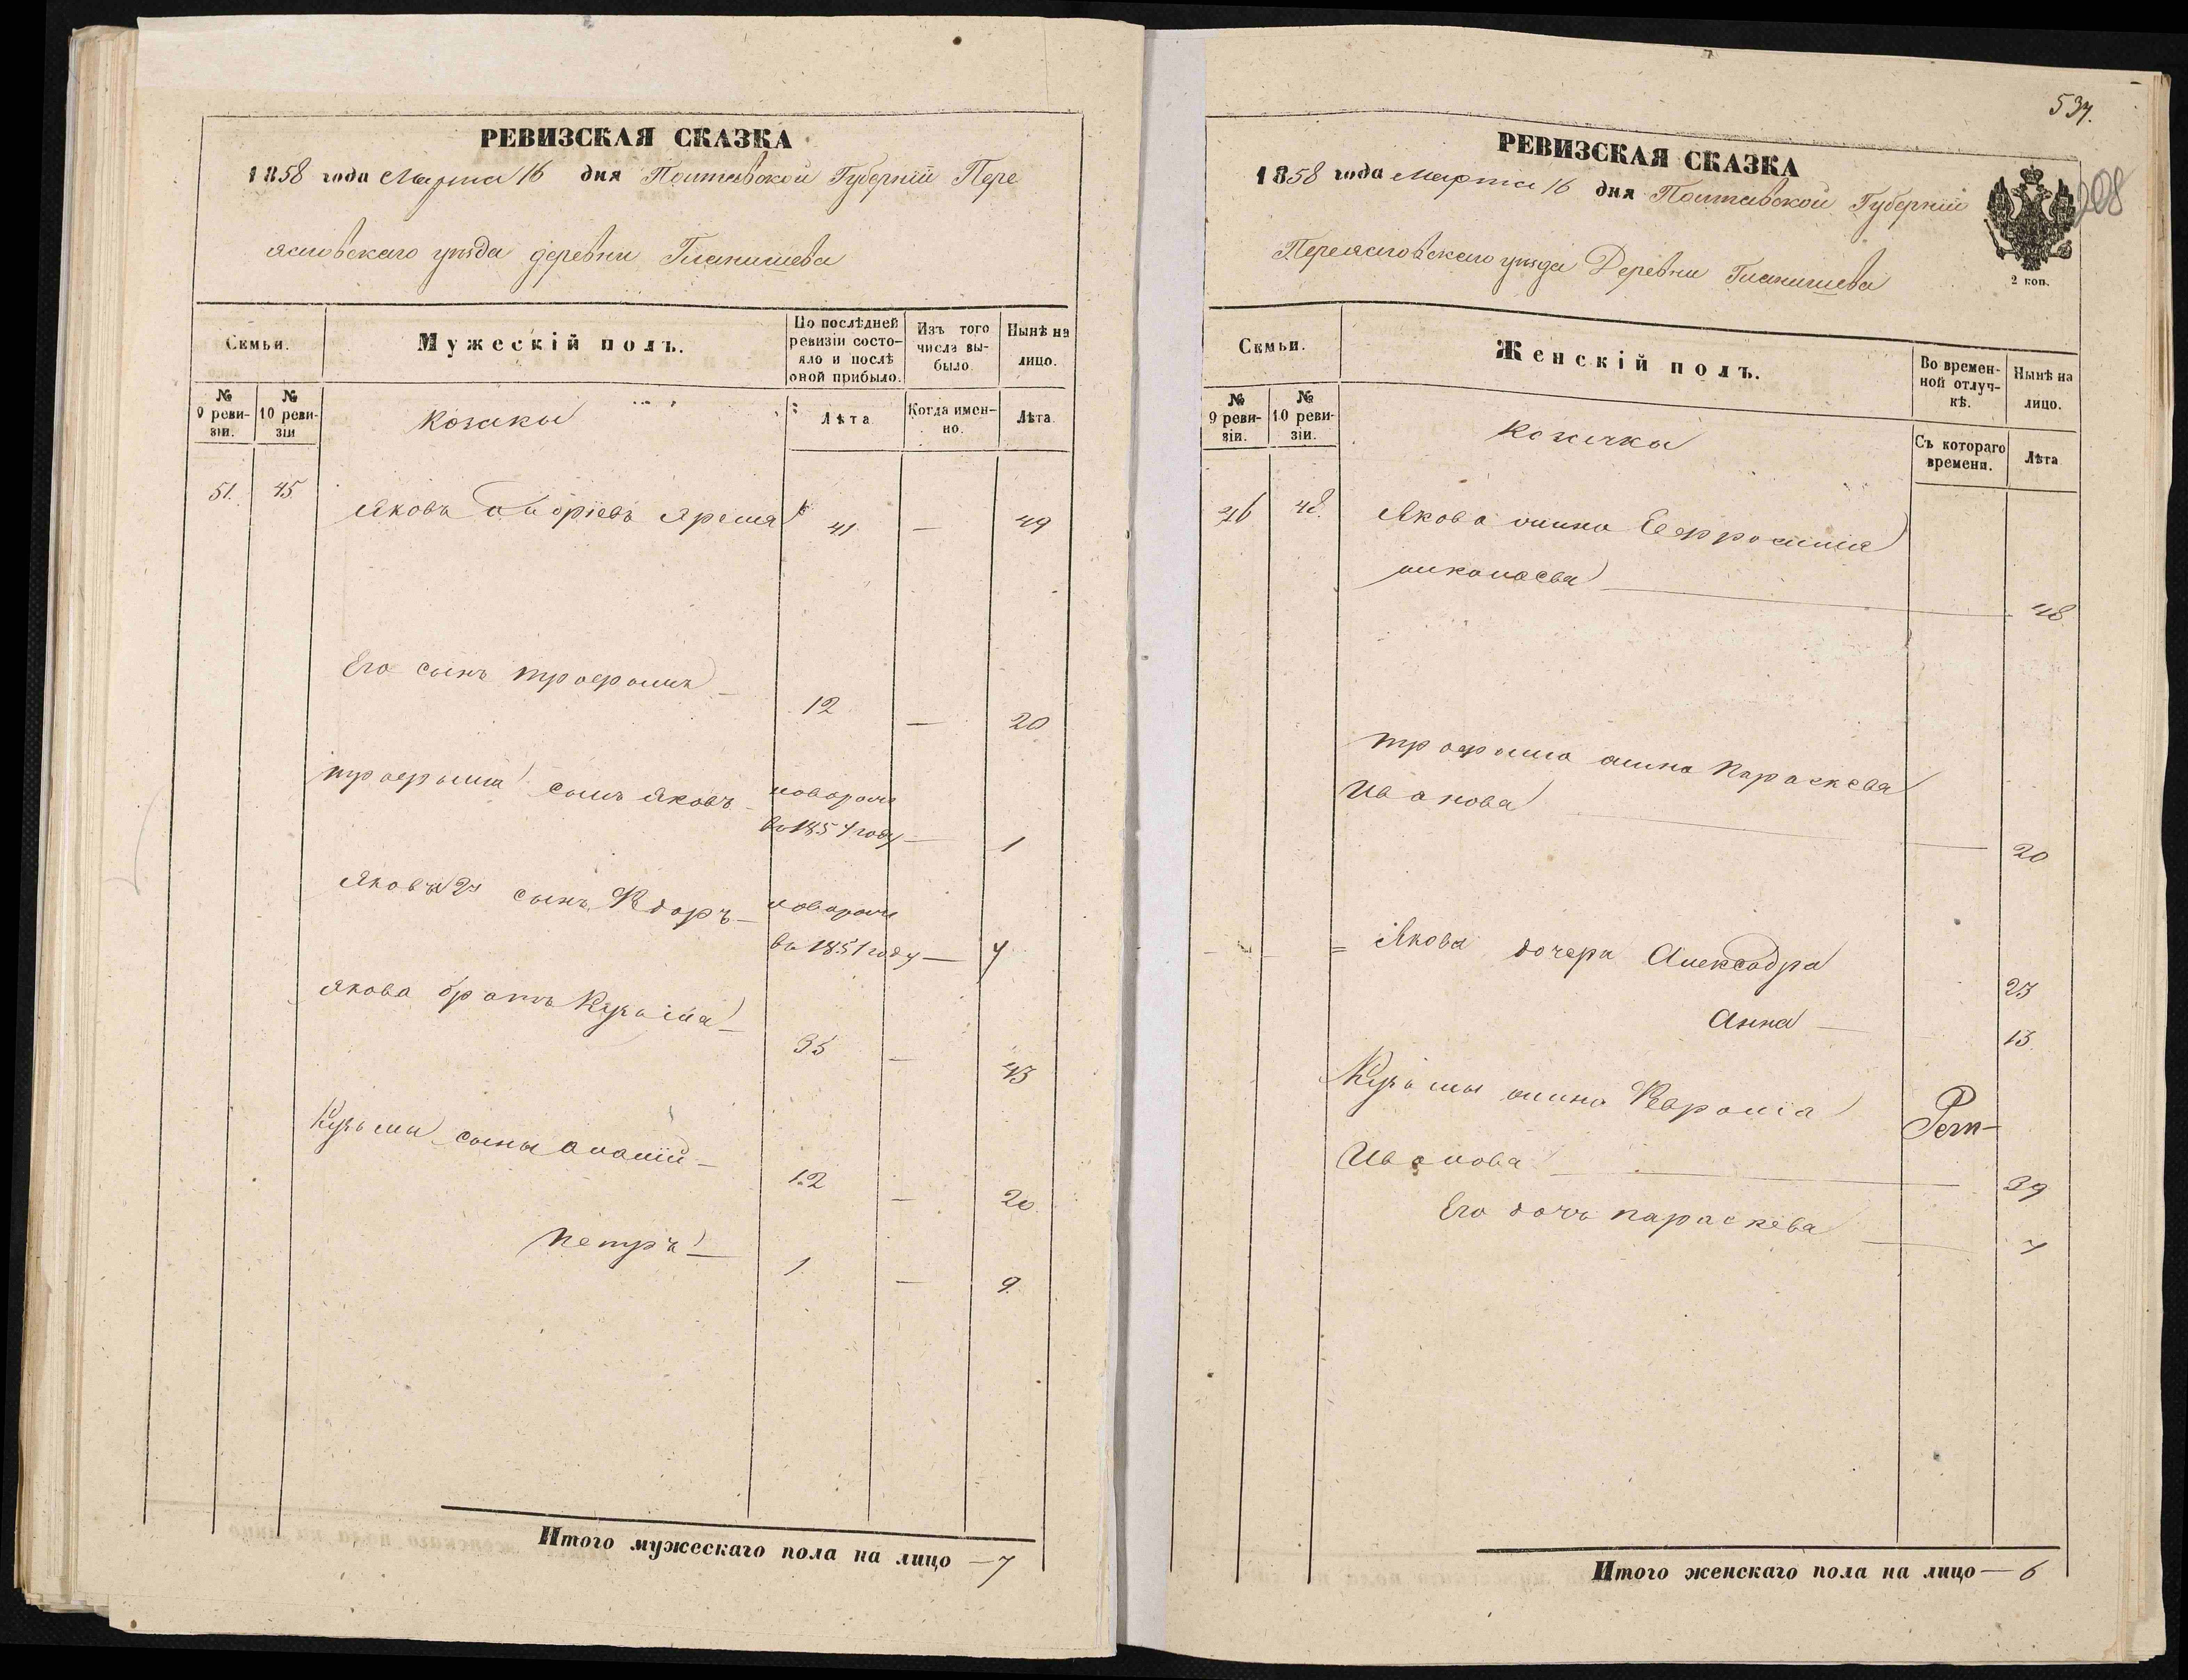 РЕВИЗСКАЯ СКАЗКА
1858 года Марта 16 дня Полтавской Губерніи Пере
яславскаго уѣзда деревни Гланишева
Семьи.
Мужескій полъ.
По послѣдней ревизіи состояло и послѣ оной прибыло.
Изъ того числа выбыло.
Нынѣ на лицо.
№ 9 ревизіи.
№ 10 ревизіи
Козаки
Лѣта
Когда именно.
Лѣта.
51. 45. Яковъ Ярема 41 — 49
Его сынъ Трофимъ — 12 — 20
Трофима сынъ Яковъ — новорож
въ 1857 году — 1
Якова 2й сынъ Ѳедоръ — новорож
въ 1851 году — 7
Якова братъ Кузьма — 35 — 43
Кузьмы сыны Ананій — 12 — 20
Петръ — 1 — 9
Итого мужескаго пола на лицо — 7
537.
208
РЕВИЗСКАЯ СКАЗКА
1858 года Марта 16 дня Полтавской Губерніи
Переяславскаго уѣзда Деревни Гланишева
2 коп.
Семьи.
Женскій полъ.
Во временной отлучкѣ.
Нынѣ на лицо.
№ 9 ревизіи.
№ 10 ревизіи.
Козачки
Съ котораго времени.
Лѣта
46 48. Якова жина Ефросинія
Николаева — 48
Трофима жина Параскева
Иванова — 20
= Якова дочери Александра 23
Анна — 13
Кузьмы жина Февронія
Иванова — 39
Его дочь Параскева — 7
Итого женскаго пола на лицо — 6